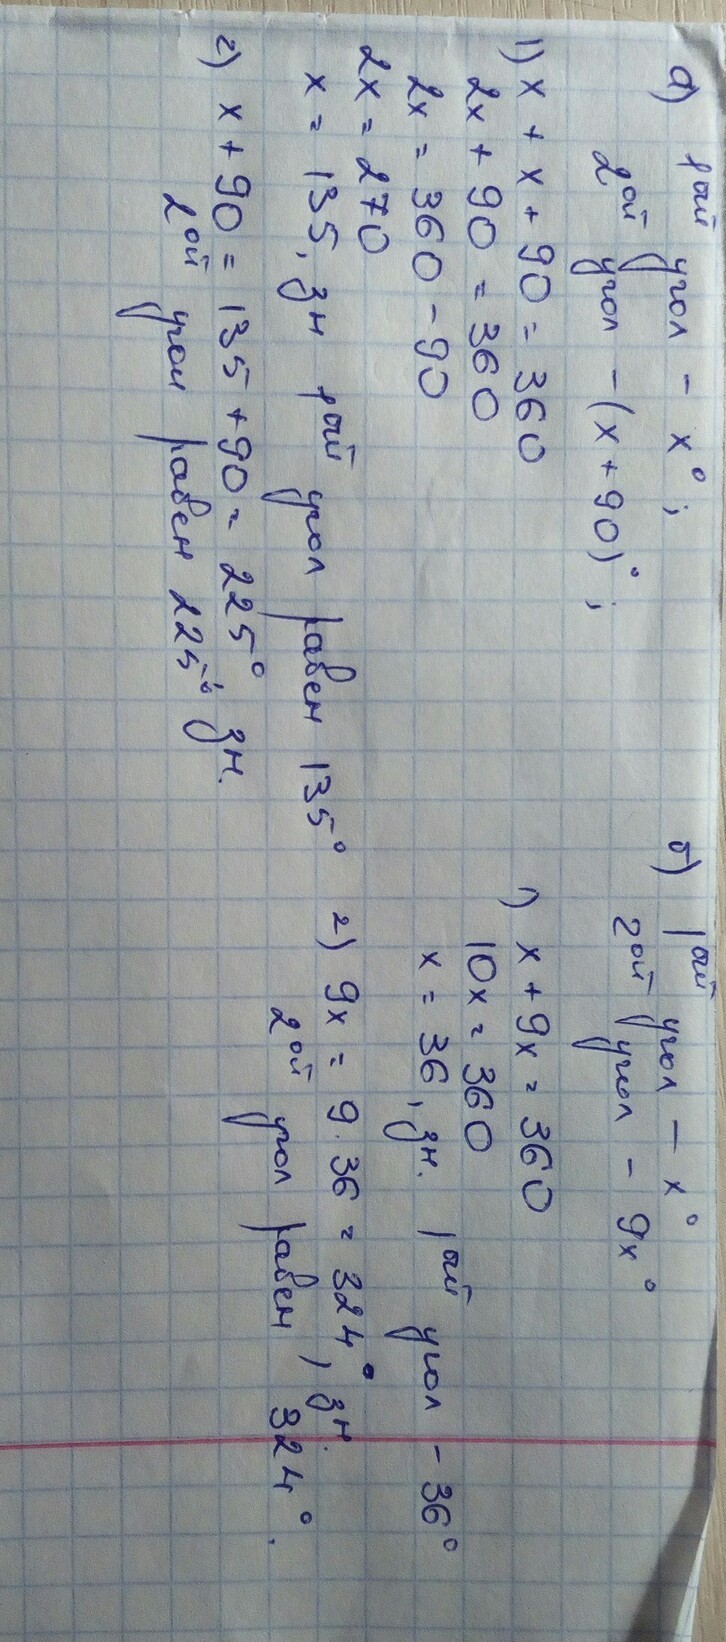 а) 1ый угол – x°;
2ой угол – (x + 90)°;
1) x + x + 90 = 360
2x + 90 = 360
2x = 360 – 90
2x = 270
x = 135, зн 1ый угол равен 135°
2) x + 90 = 135 + 90 = 225°, зн.
2ой угол равен 225°
б) 1ый угол – x°
2ой угол – 9x°
1) x + 9x = 360
10x = 360
x = 36, зн. 1ый угол – 36°
2) 9x = 9·36 = 324°, зн.
2ой угол равен 324°.